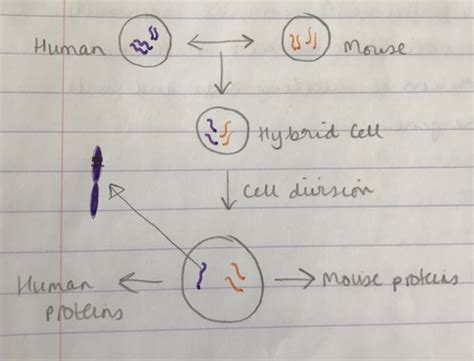 Human
Mouse
Hybrid Cell
Cell division
Human proteins
Mouse proteins